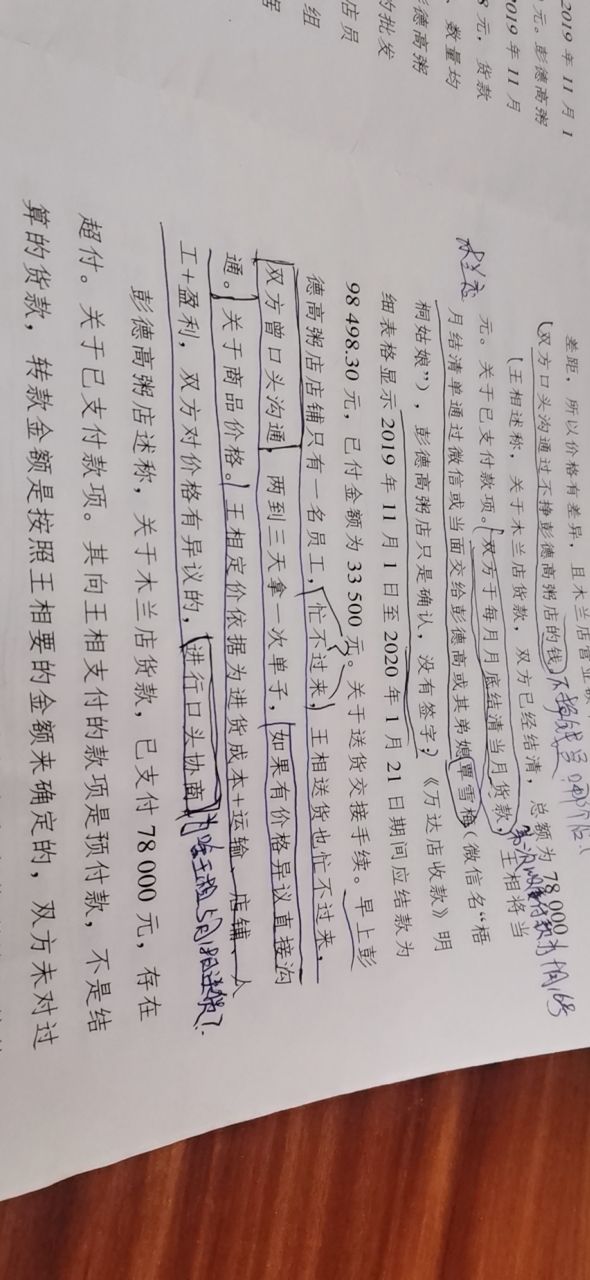 2019 年 11 月 1
元。彭德高粥
2019 年 11 月
8 元，货款
、数量均
彭德高粥
的批发
店员
组
差距，所以价格有差异，且木兰店营业
双方口头沟通过不挣彭德高粥店的钱
王相述称，关于木兰店货款，双方已经结清，总额为 78 000
元。关于已支付款项。双方于每月月底结清当月货款，王相将当
月结清单通过微信或当面交给彭德高或其弟媳覃雪梅（微信名“梧
桐姑娘”），彭德高粥店只是确认，没有签字；《万达店收款》明
细表格显示 2019 年 11 月 1 日至 2020 年 1 月 21 日期间应结款为
98 498.30 元，已付金额为 33 500 元。关于送货交接手续。早上彭
德高粥店店铺只有一名员工，忙不过来，王相送货也忙不过来，
双方曾口头沟通，两到三天拿一次单子，如果有价格异议直接沟
通。关于商品价格。王相定价依据为进货成本+运输、店铺、人
工+盈利，双方对价格有异议的，进行口头协商
彭德高粥店述称，关于木兰店货款，已支付 78 000 元，存在
超付。关于已支付款项。其向王相支付的款项是预付款，不是结
算的货款，转款金额是按照王相要的金额来确定的，双方未对过